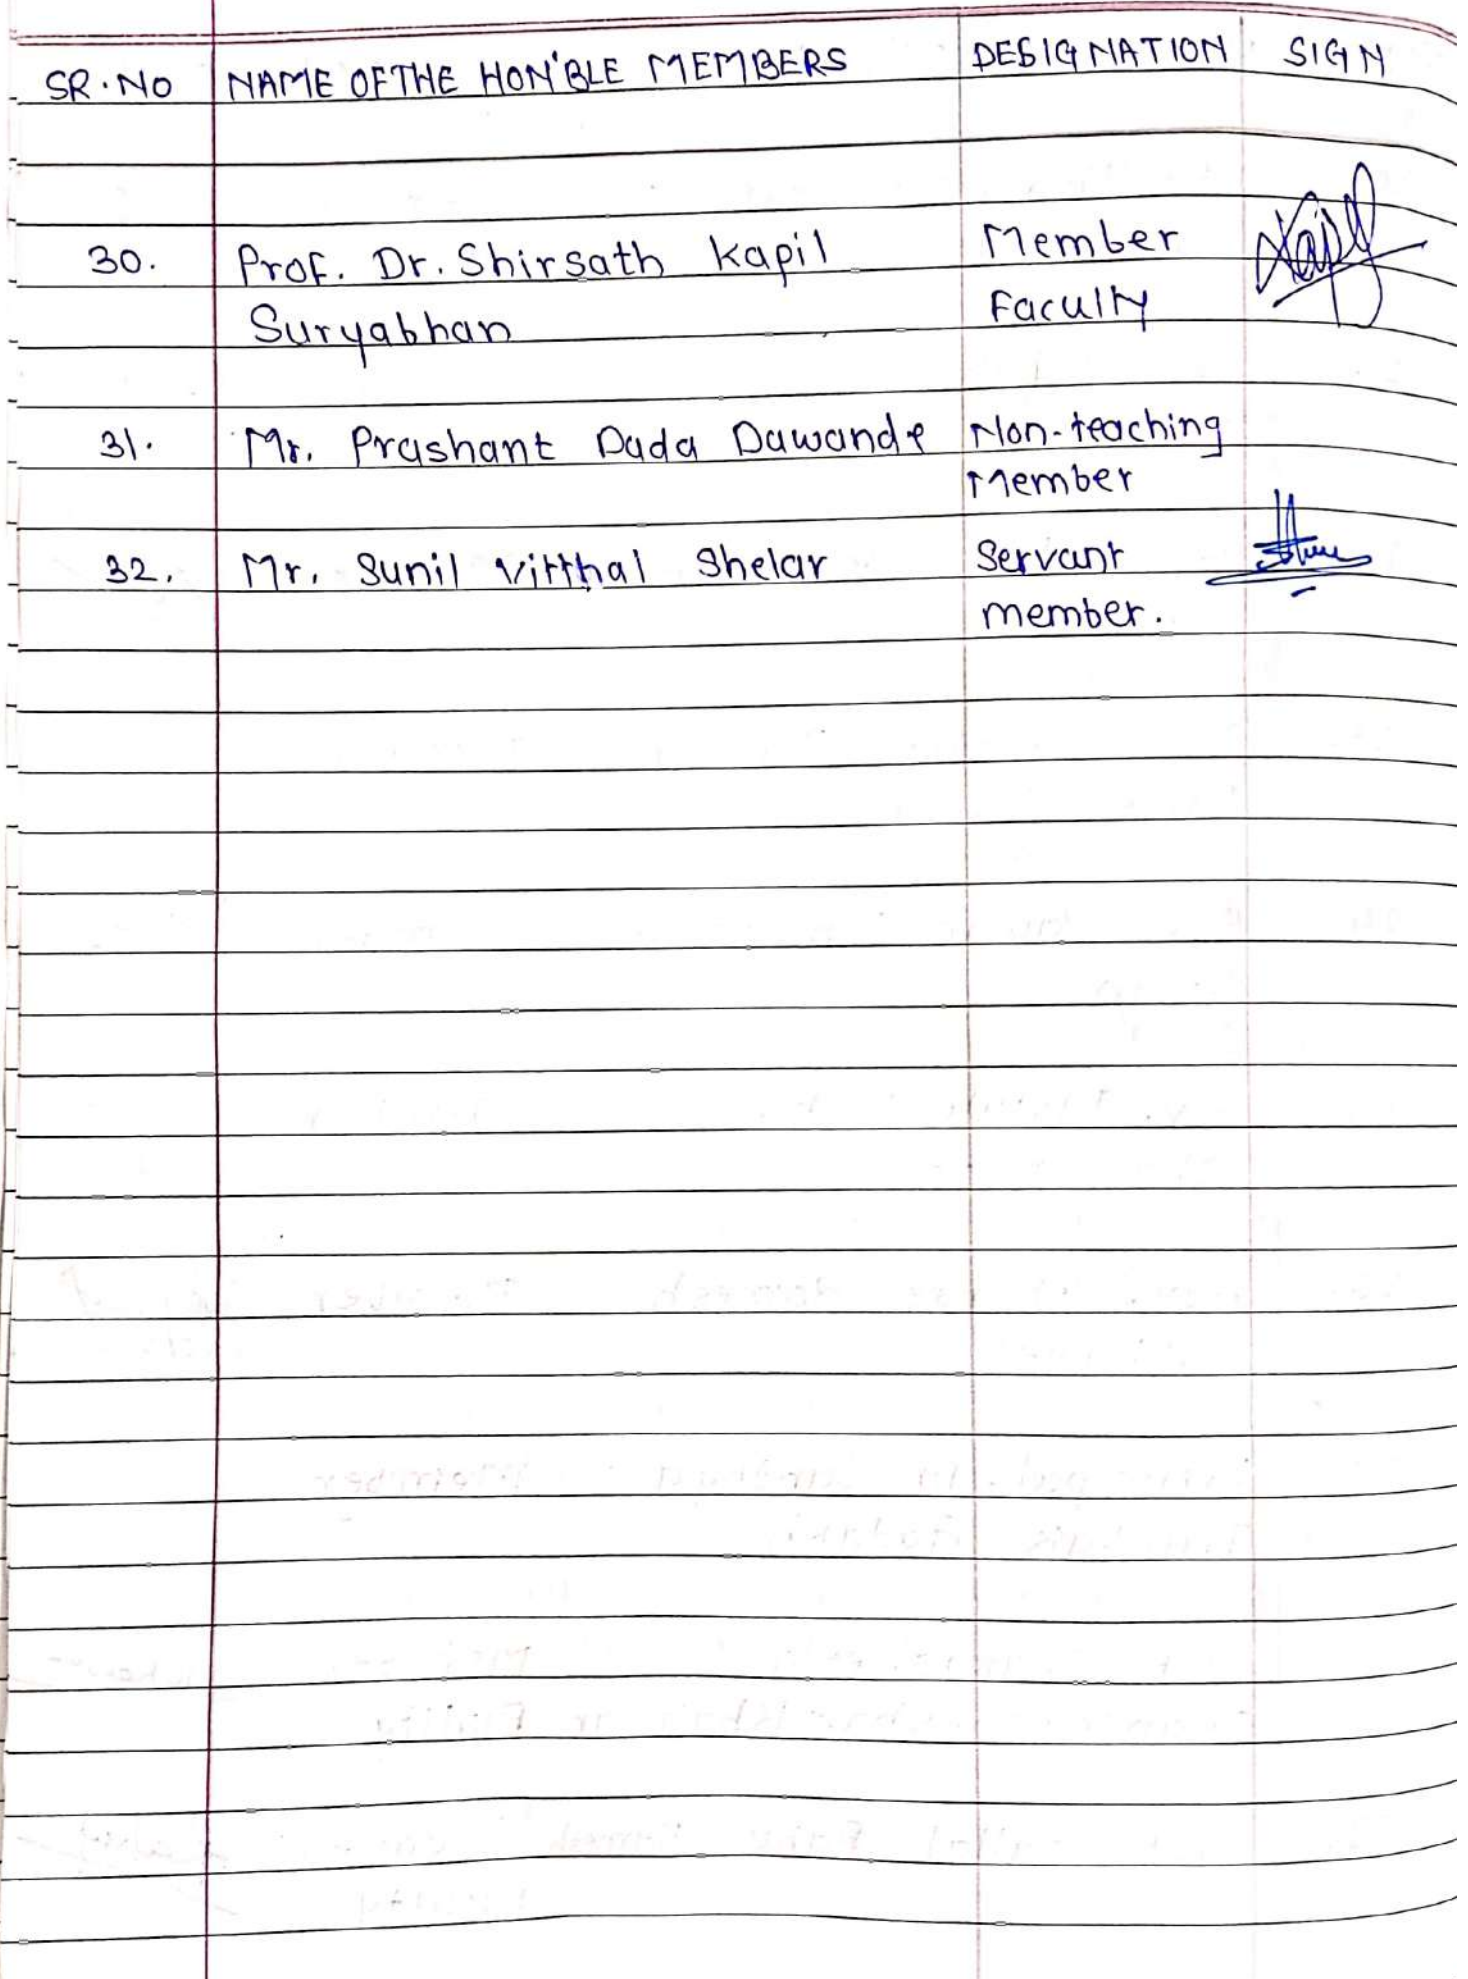 SR.NO NAME OF THE HON'BLE MEMBERS DESIGNATION SIGN
30. Prof. Dr. Shirsath Kapil Member
Suryabhan Faculty
31. Mr. Prashant Dada Dawande Non-teaching
Member
32. Mr. Sunil Vitthal Shelar Servant
member.